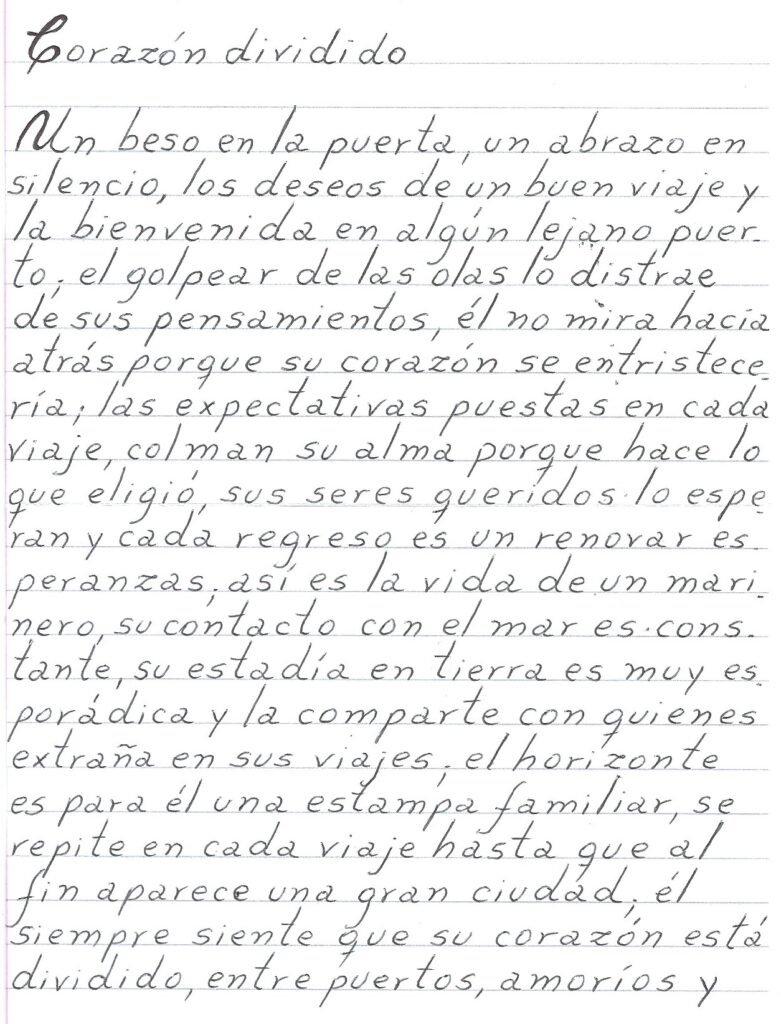 Corazón dividido
Un beso en la puerta, un abrazo en
silencio, los deseos de un buen viaje y
la bienvenida en algún lejano puer-
to; el golpear de las olas lo distrae
de sus pensamientos, él no mira hacia
atrás porque su corazón se entristece-
ría; las expectativas puestas en cada
viaje, colman su alma porque hace lo
que eligió, sus seres queridos lo espe-
ran y cada regreso es un renovar es-
peranzas; así es la vida de un mari-
nero, su contacto con el mar es cons-
tante, su estadía en tierra es muy es-
porádica y la comparte con quienes
extraña en sus viajes; el horizonte
es para él una estampa familiar, se
repite en cada viaje hasta que al
fin aparece una gran ciudad; él
siempre siente que su corazón está
dividido, entre puertos, amoríos y